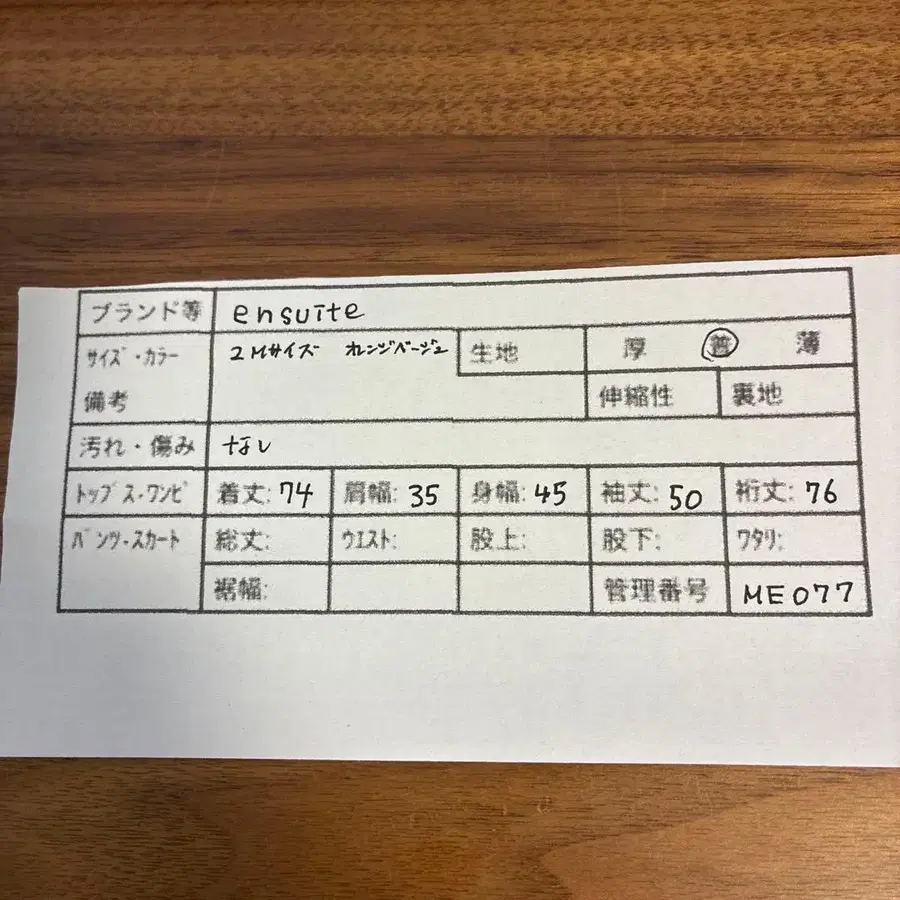 ブランド等 ensuite
サイズ・カラー 2Mサイズ オレンジベージュ 生地 厚 普 薄
備考 伸縮性 裏地
汚れ・傷み なし
トップス・ワンピ 着丈: 74 肩幅: 35 身幅: 45 袖丈: 50 裄丈: 76
パンツ・スカート 総丈: ウエスト: 股上: 股下: ワタリ:
裾幅: 管理番号 ME077